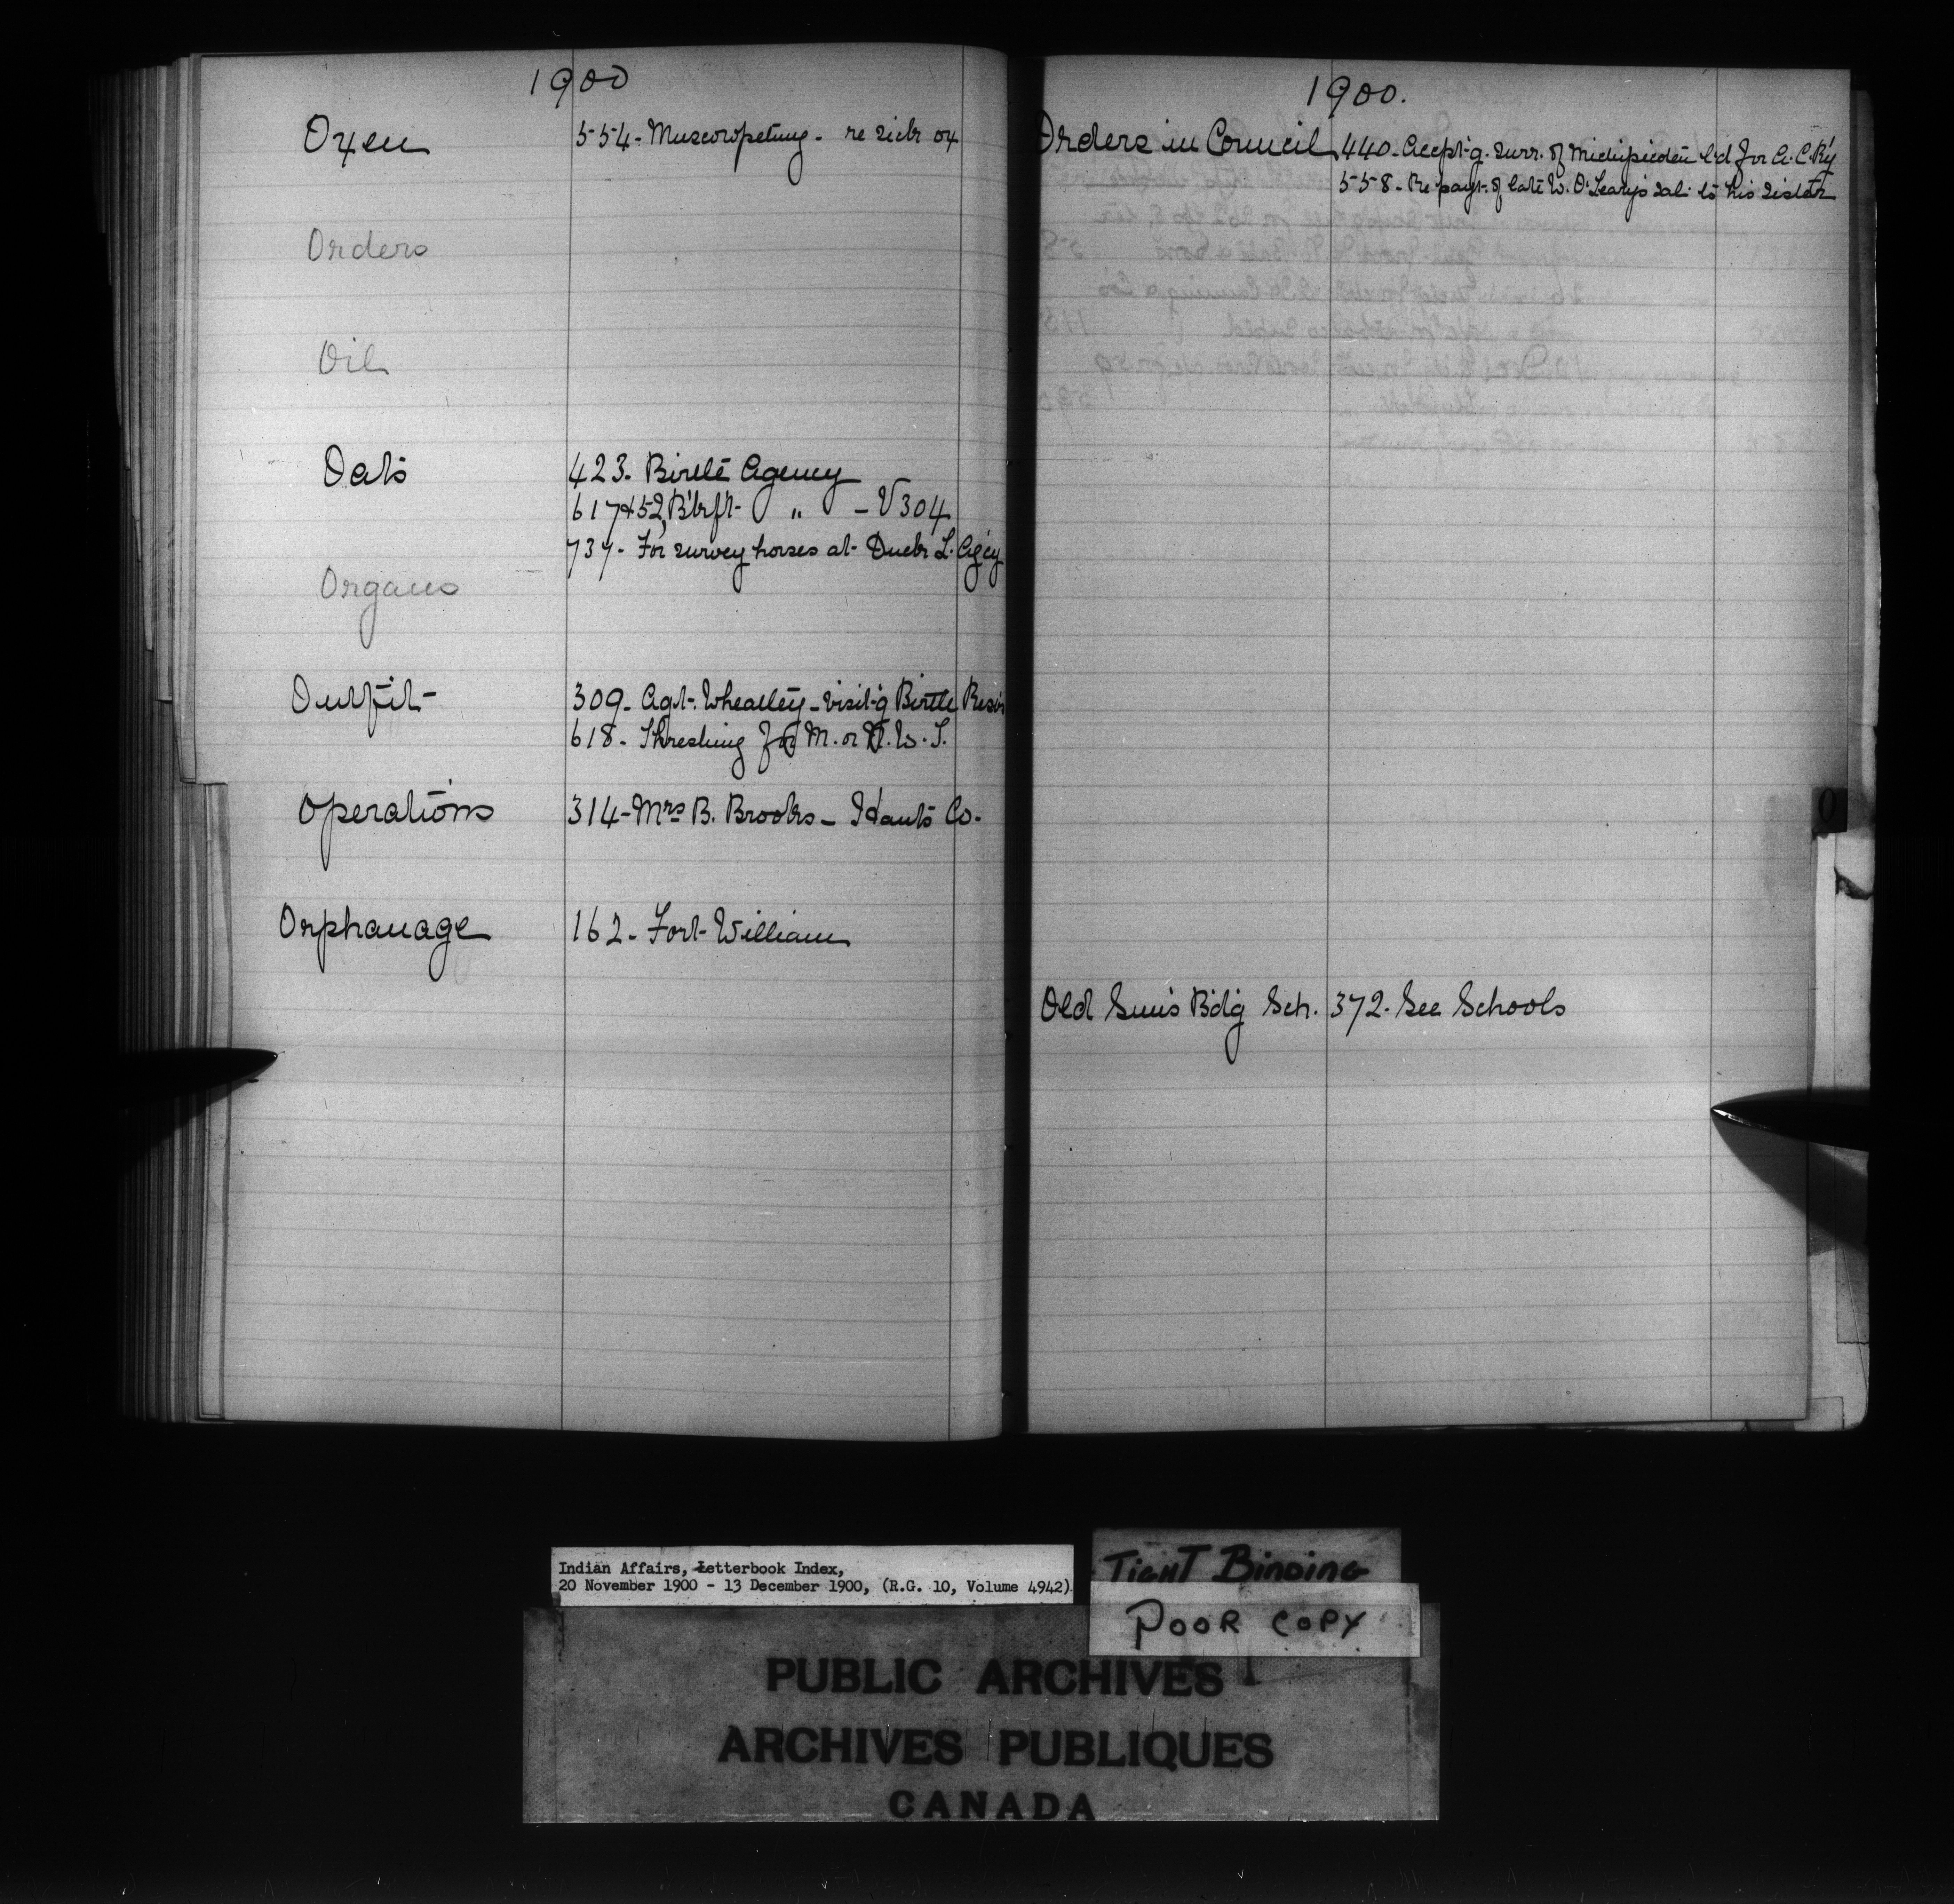 1900
Oxen 554- Muscowpetung - re sick ox
Orders
Oil
Oats 423. Birtle Agency
617 & 52, B'tlef't- " - V 304
737- For survey horses at Duck L. Ag'cy
Organs
Outfit 309- Agt. Wheatley - visit'g Birtle Res's
618- Threshing for M. or N.W.T.
Operations 314- Mrs B. Brooks - Hants Co.
Orphanage 162- Fort William
1900.
Orders in Council 440- Accpt'g. surr. of Michipicoten l'd for A.C.R'y
558- Re payt. of late W. O'Leary's sal. to his sister
Old Sun's B'd'g Sch. 372- See Schools
O
Indian Affairs, Letterbook Index,
20 November 1900 - 13 December 1900, (R.G. 10, Volume 4942)
TIGHT BINDING
POOR COPY
PUBLIC ARCHIVES
ARCHIVES PUBLIQUES
CANADA